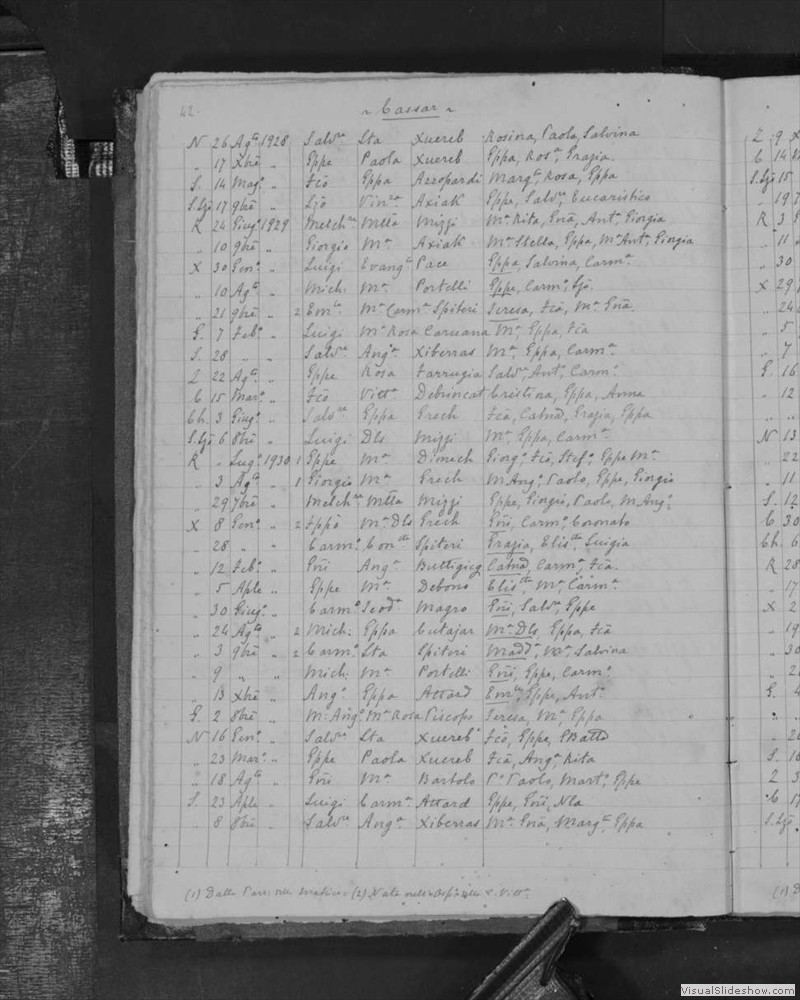 42.
~ Cassar ~
N 26 Agto 1928 Salvre Sta Xuereb Rosina, Paola, Salvina
„ 17 Xbre „ Eppe Paola Xuereb Eppa, Rosa, Grazia
S. 14 Mago „ Fco Eppa Azzopardi Margta Rosa, Eppa
S.Lż 17 9bre „ Ljo Vinza Axiak Eppe, Salvre Eucaristico
R 24 Giugo 1929 Melchre Mtta Mizzi Ma Rita, Gnã, Anta Giorgia
„ 10 9bre „ Giorgio Ma Axiak Ma Stella, Eppa, Ma Anta, Giorgia
X 30 Geno „ Luigi Evangta Pace Eppa, Salvina, Carma
„ 10 Agto „ Mich: Ma Portelli Eppe, Carmo, Ljo.
„ 21 9bre „ 2 Emle Ma Carma Spiteri Teresa, Fca, Ma Gnã.
G. 7 Febo „ Luigi Ma Rosa Caruana Ma, Eppa, Fca
S. 28 „ „ Salvre Anga Xiberras Ma, Eppa, Carma
Z 22 Agto „ Eppe Rosa Farrugia Salvre, Anto, Carmo
C 15 Maro „ Fco Vitta Debrincat Cristina, Eppa, Anna
Ch. 3 Giugo „ Salvre Eppa Grech Fca, Catnã, Grazia, Eppa
S.Lż 6 8bre „ Luigi Dls Mizzi Ma, Eppa, Carma
R „ Lugo 1930 1 Eppe Ma Dimech Giorgo, Fco, Stefo, Eppe Ma
„ 3 Agto „ 1 Giorgio Ma Grech M. Ango, Paolo, Eppe, Giorgio
„ 29 7bre „ Melchre Mtta Mizzi Eppe, Giorgio, Paolo, M. Ango
X 8 Geno „ 2 Fppo Ma Dls Grech Gni, Carmo, Coronato
„ 28 „ „ Carmo Contta Spiteri Grazia, Elistta, Luigia
„ 12 Febo „ Gni Anga Buttigieg Catnã, Carma, Fca
„ 5 Aple „ Eppe Ma Debono Elistta, Ma, Carma
„ 30 Giugo „ Carmo Teoda Magro Gni, Salvre, Eppe
„ 24 Agto „ 2 Mich: Eppa Cutajar Ma Dls, Eppa, Fca
„ 3 9bre „ 2 Carmo Sta Spiteri Madda, Ma, Salvina
„ 9 „ „ Mich: Ma Portelli Gni, Eppe, Carmo
„ 13 Xbre „ Ango Eppa Attard Emle, Eppe, Anto
G. 2 8bre „ M: Ango Ma Rosa Piscopo Teresa, Ma, Eppa
N 16 Geno „ Salvre Sta Xuereb Fco, Eppe, GBatta
„ 23 Maro „ Eppe Paola Xuereb Fca, Anga, Rita
„ 18 Agto „ Gni Ma Bartolo Po Paolo, Marto, Eppe
S. 23 Aple „ Luigi Carma Attard Eppe, Gni, Nla
„ 8 8bre „ Salvre Anga Xiberras Ma Gnã, Margta, Eppa
(1) Dalla (2) Nato
Z 9
C 14
S.Lż 15
„ 19
R 3
„ 11
„ 30
X 29
„ 24
„ 5
„ 7
G. 16
„ 12
„ „
N 13
„ 22
„ 11
S. 12
C 30
Ch. 6
R 28
„ 17
X 2
„ 19
„ 30
G. 4
S. 16
Z 3
C 17
S.Lż
(1)
VisualSlideshow.com